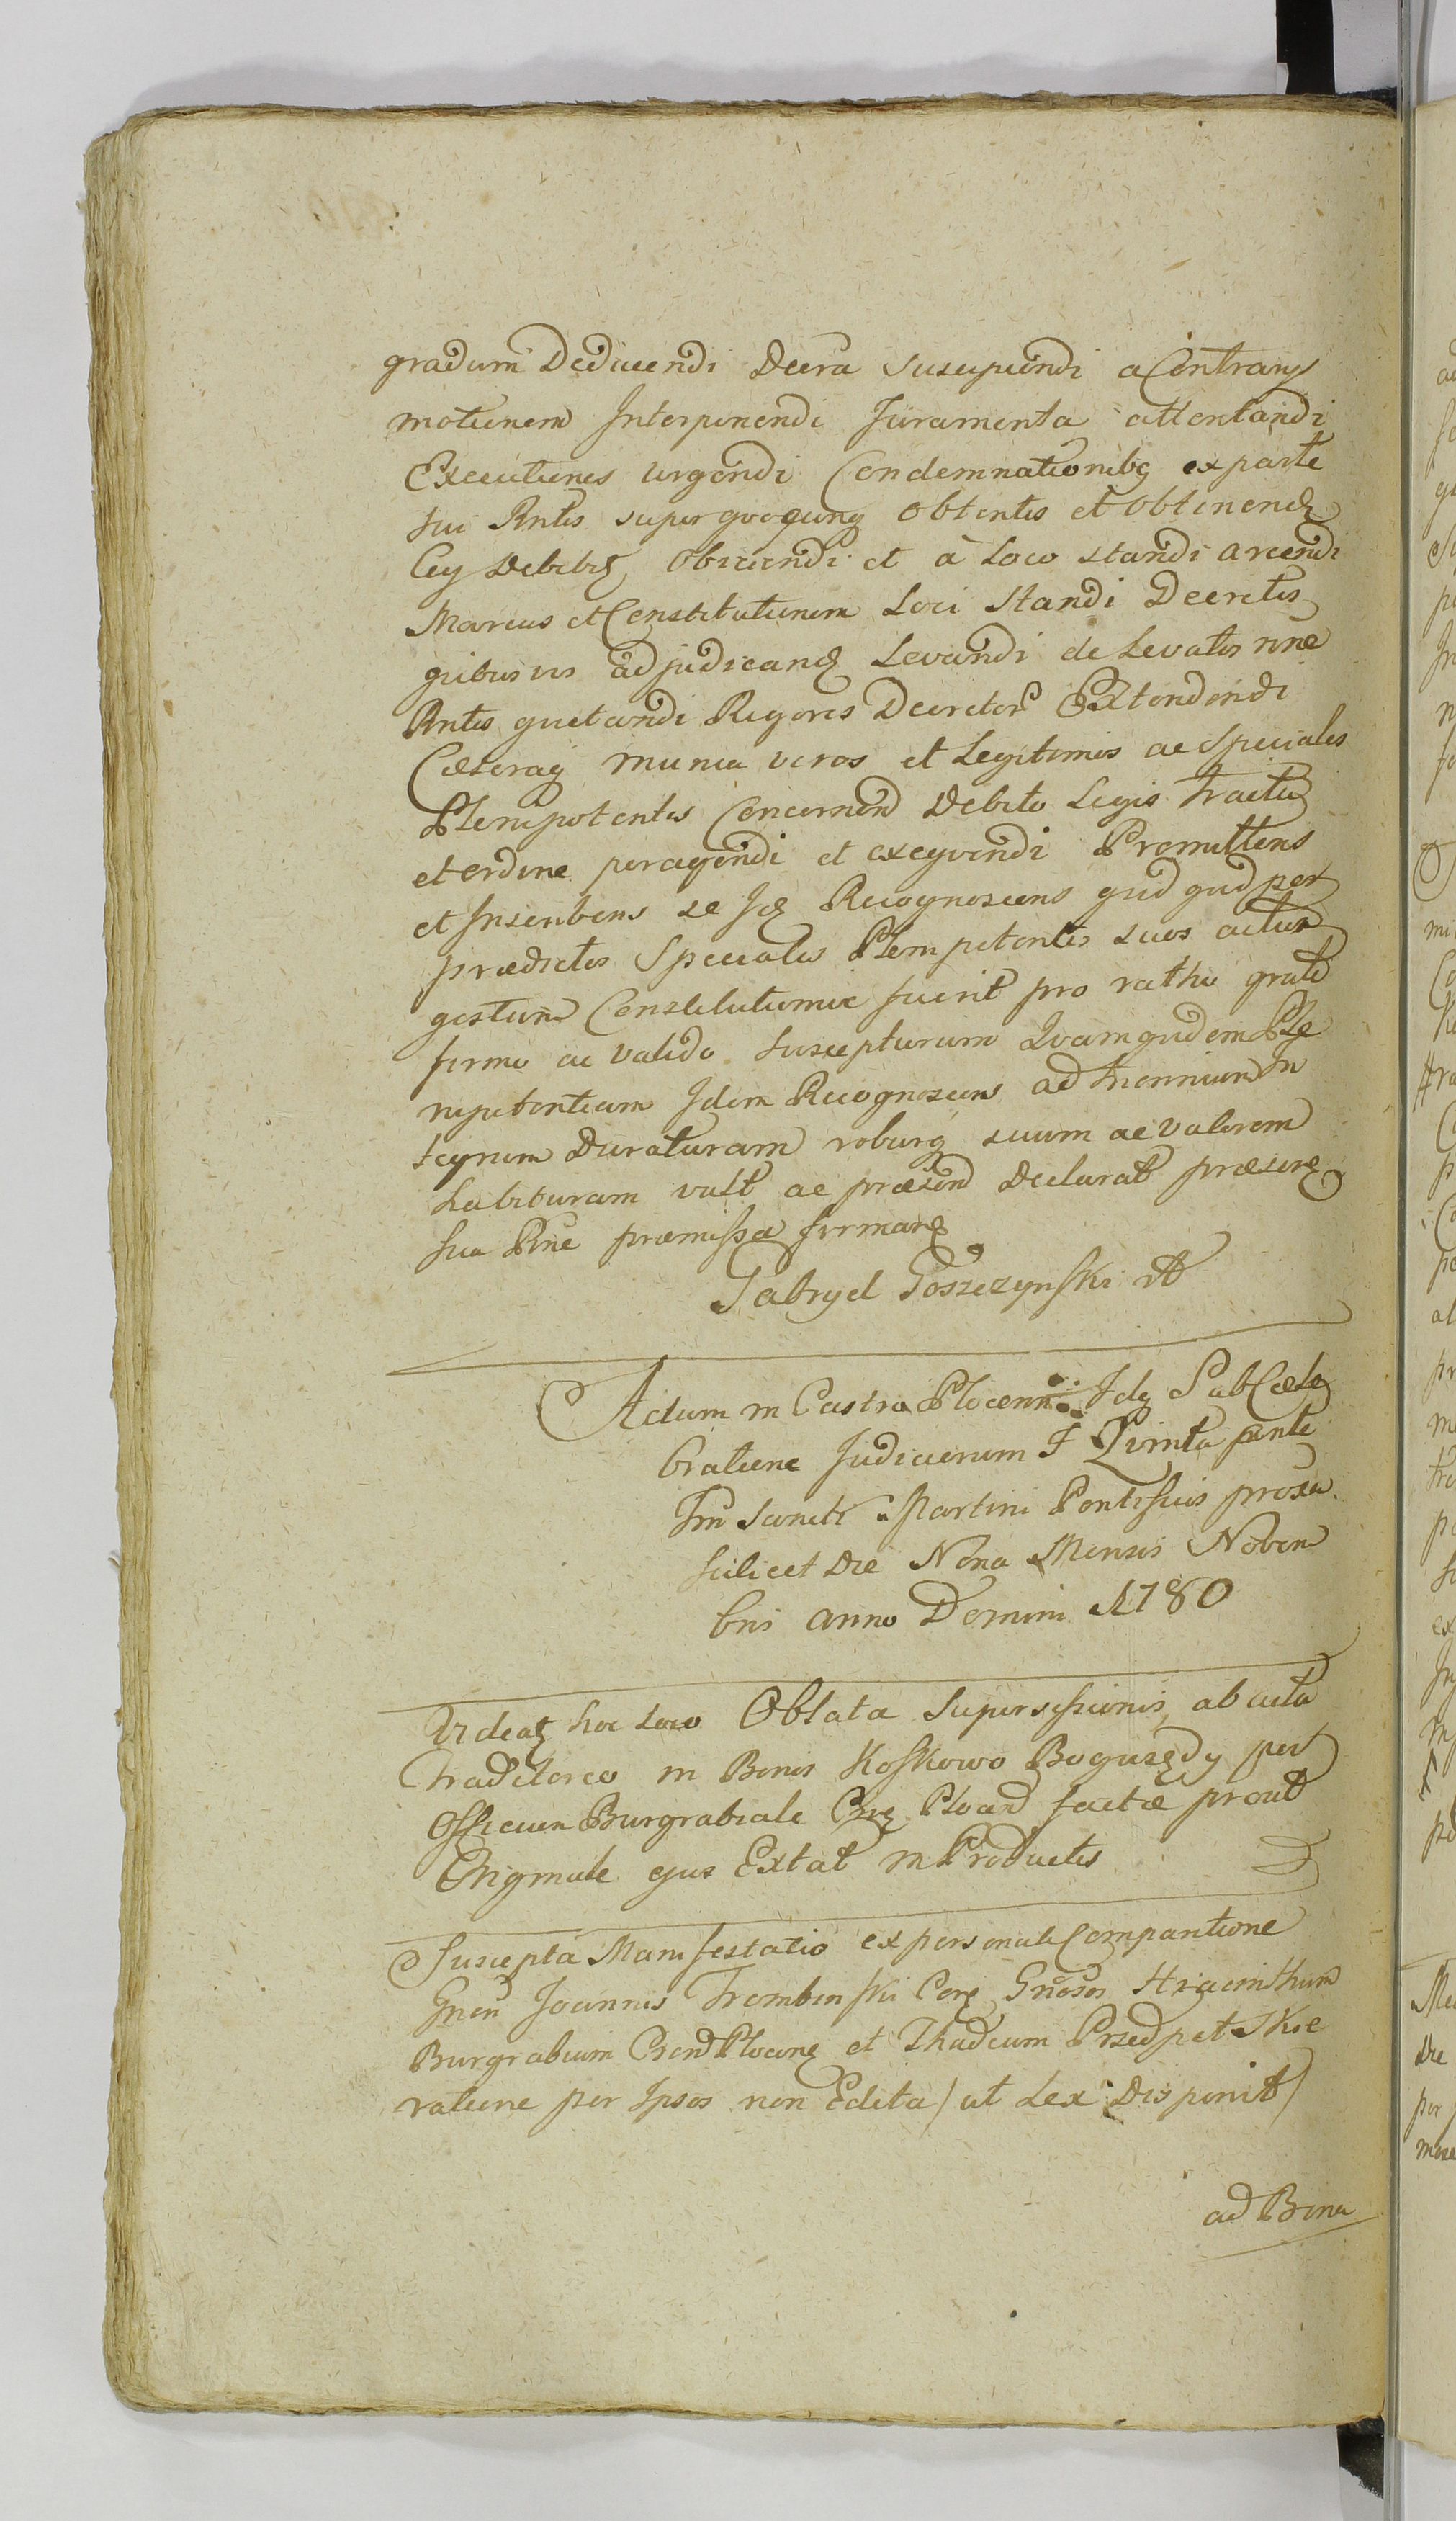 gradum Deducendi Decra suscipiendi a Contrarys
motionem Interponendi Juramenta attentandi
Executiones urgendi Condemnationibq ex parte
sui Rntis super quoqunq obtentis et obtinend
Cuj Debitis obiiciendi et à Loco standi arcendi
Marcus et Constitutionem Loci Standi Decretis
quibusvis adjudicand Levandi de Levatis nne
Rntis quietandi Rigores Decretor Extendendi
Cæteraq munia veros et Legitimos ac Speciales
Plenipotentes Concernen Debito Legis Tractu
et ordine peragendi et exeqvendi Promittens
et Inscribens se Idq Recognoscens qud qud per
prædictos Speciales Plenipotentes suos actum
gestum Constitutumve fuerit pro ratho grato
firmo ac valido suscepturum Qvamqudem Ple
nipotentiam Idem Recognoscens ad Triennium In
tegrum Duraturam roburq suum ac valorem
habituram vult ac præsend Declarat præsene
sua Pne præmissa firmans
Gabryel Goszczynski mp
Actum in Castro Plocenn Idq Sub Cæle
bratione Judiciorum F Quinta ante
Fm Sancti Martini Pontificis proxa
scilicet Die Nona Mensis Novem
bris anno Domini 1780
Videatq hoc loco Oblata supersessionis ab actu
Traditorio in Bonis Koskowo Boguszędy per
Officium Burgrabiale Cre Plocen factæ prout
Originale ejus Extat in Productis
Suscepta Manifestatio ex personali Comparitione
Gnen Joannis Trombinski Corq Gnosos Hiacinthum
Burgrabium Cren Plocenq et Thadeum Przedpełskie
ratione per Ipsos non Edita / ut Lex Disponit /
ad Bona